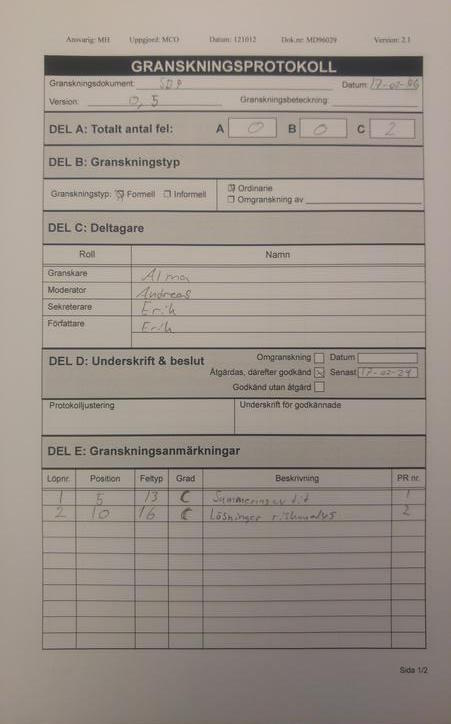 Ansvarig: MH Uppgjord: MCO Datum: 121012 Dok.nr: MD96029 Version: 2.1
GRANSKNINGSPROTOKOLL
Granskningsdokument: SDP Datum:
Version: 0,5 Granskningsbeteckning:
DEL A: Totalt antal fel: A 0 B 0 C 2
DEL B: Granskningstyp
Granskningstyp: Formell Informell
Ordinarie
Omgranskning av
DEL C: Deltagare
Roll Namn
Granskare Alma
Moderator Andreas
Sekreterare Erik
Författare Erik
DEL D: Underskrift & beslut
Omgranskning Datum
Åtgärdas, därefter godkänd Senast
Godkänd utan åtgärd
Protokolljustering Underskrift för godkännade
DEL E: Granskningsanmärkningar
Löpnr. Position Feltyp Grad Beskrivning PR nr.
1 5 13 C Summering av tid 1
2 10 16 C Lösningar 2
Sida 1/2